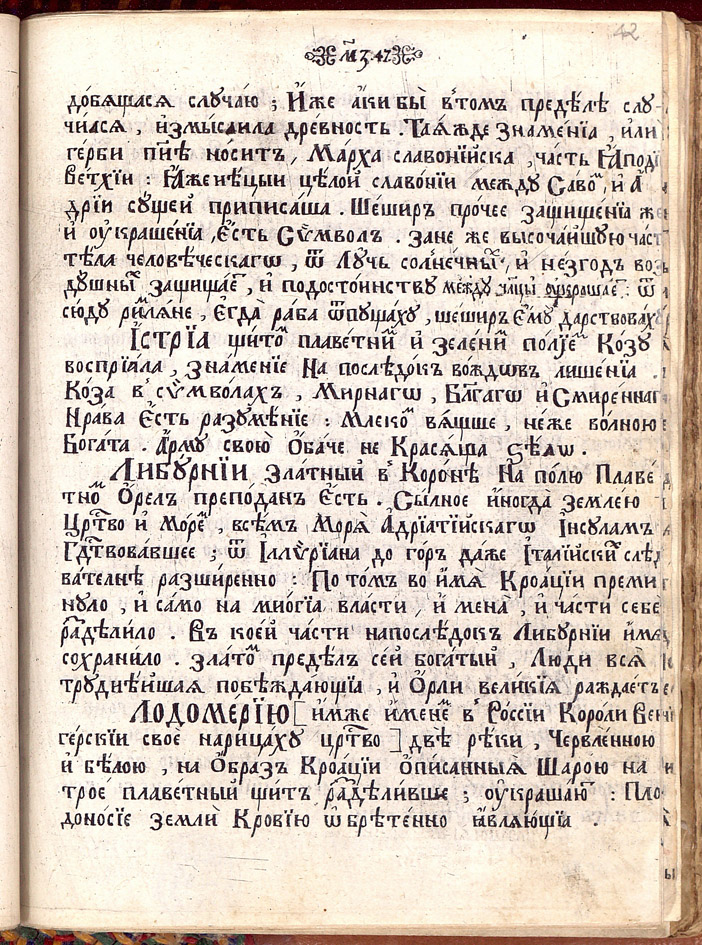 42
М҃З. 47
до́бящася случа́ю ; И҆́же а҆́ки бы̀ в̾то́мъ преде́лѣ слу-
чи́ася , и҆змы́слила дре́вность . Та́яжде зна́менїа , и҆лѝ
ге́рби нн҃ѣ но́ситъ , Ма́рха славоні́йска , ча́сть
ве́тхїи : ꙗ҆́же це́лой славо́нїи между Са́вою , и҆ А҆-
дрі́и су́щей приписа́ша . Ше́широъ про́чее защище́нїа же
и҆ оу҆краше́нїа , Є҆́сть Сѷ́мволъ . зане́ же высоча́йшую част
тѣ́ла человѣ́ческагѡ , ѿ Лу́чь со́лнечны́х , и҆ не́згодъ воз
ду́шны́х защища́етъ , и҆ подосто́инству между оу҆краша́етъ : ѿ
сю́ду ри́мляне , Є҆гда̀ ра́ба ѿпуща́ху , ше́широъ є҆му̀ да́рствоваху
І҆́стрїа щито́м плаве́тни́м и҆ зелени́м по́лїе́м Ко́зу
воспрїа́ла , зна́менїе На послѣ́докъ во́ждѡвъ лише́нїа .
Ко́за в̾ сѷмво́лахъ , Ми́рнагѡ , Бл҃га́гѡ и҆ Смире́ннаг
Нра́ва Є҆́сть разумѣ́нїе : Млеко́м вя́щше , не́же во́лною
Бога́та . А҆́рму свою̀ О҆ба́че не Кра́сяща ѕѣ́лѡ .
Либу́рнїи зла́тный в̾ Коро́нѣ На по́лю Плаве́
тно́м О҆ре́лъ препо́данъ є҆́сть . Сы́лное и҆ногда̀ земле́ю
Цр҃тво и҆ Мо́ре́м , всѣ́мъ Мо́ря А҆дрїатїйскагѡ І҆́нсуламъ
Гд҃твова́вшее ; ѿ І҆ллѷрїа́на до го́ръ да́же І҆талі́йски́х слѣ́д
ва́телнѣ разши́ренно : По то́мъ во и҆́мя Кроа́цїи преми
ну́ло , и҆ са́мо на мно́гїа вла́сти , и҆ мена̀ , и҆ ча́сти себѐ
раздели́ло . Въ кое́й ча́сти напослѣ́докъ Либу́рнїи и҆́мя
сохрани́ло . зла́то́м предѣ́лъ се́й бога́тый , Лю́ди вся̀
трудне́йшая побѣжда́ющїа , и҆ О҆рлѝ вели́кїя ражда́етъ
Лодоме́рїю [ и҆́мже и҆́мене́м в̾ Ро́ссїи Коро́ли Вен
ге́рскїи своѐ нарица́ху цр҃тво ] двѣ̀ рѣ́ки , Че́рвленною
и҆ бѣ́лою , на О҆́бразъ Кроа́цїи о҆пи́санныя Ша́рою на
тро́е плаве́тный щи́тъ раздели́вше ; оу҆краша́ютъ : Пло-
доно́сїе землѝ Кро́вїю ѡ҆брѣ́тенно ꙗ҆вля́ющїа .